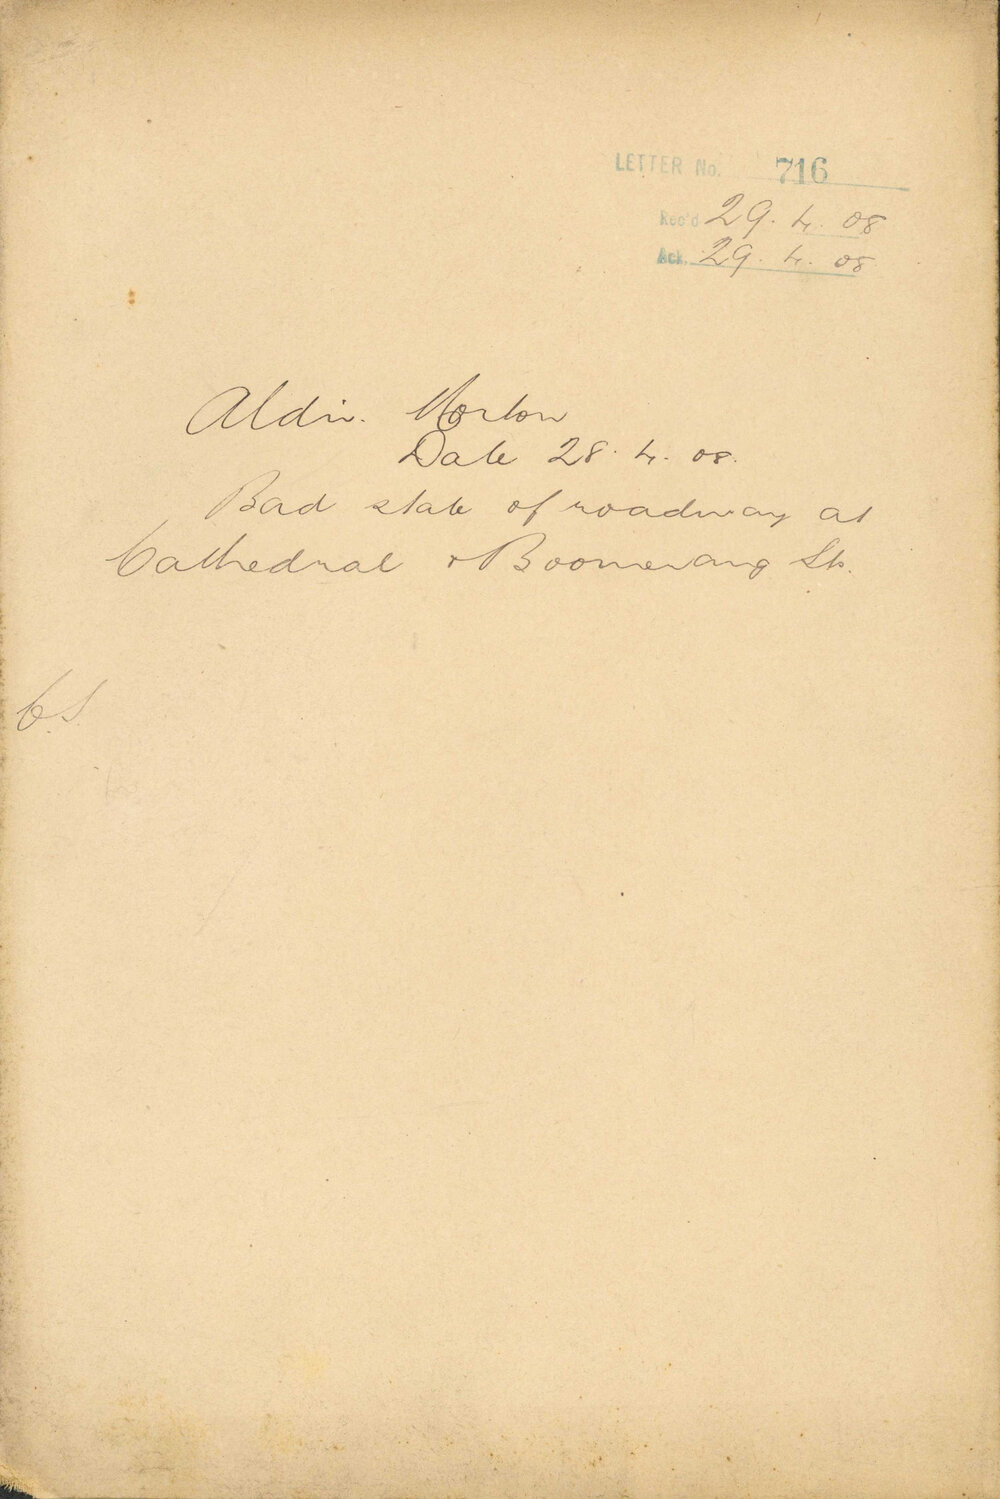 LETTER No. 716
Rec'd 29. 4. 08
Ack. 29. 4. 08
Aldn. Morton
Date 28. 4. 08.
Bad state of roadway at
Cathedral & Boomerang Sts.
C.S.